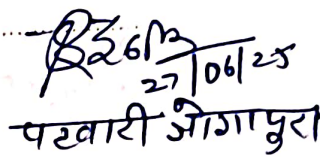 27/06/25
पटवारी जोगापुरा